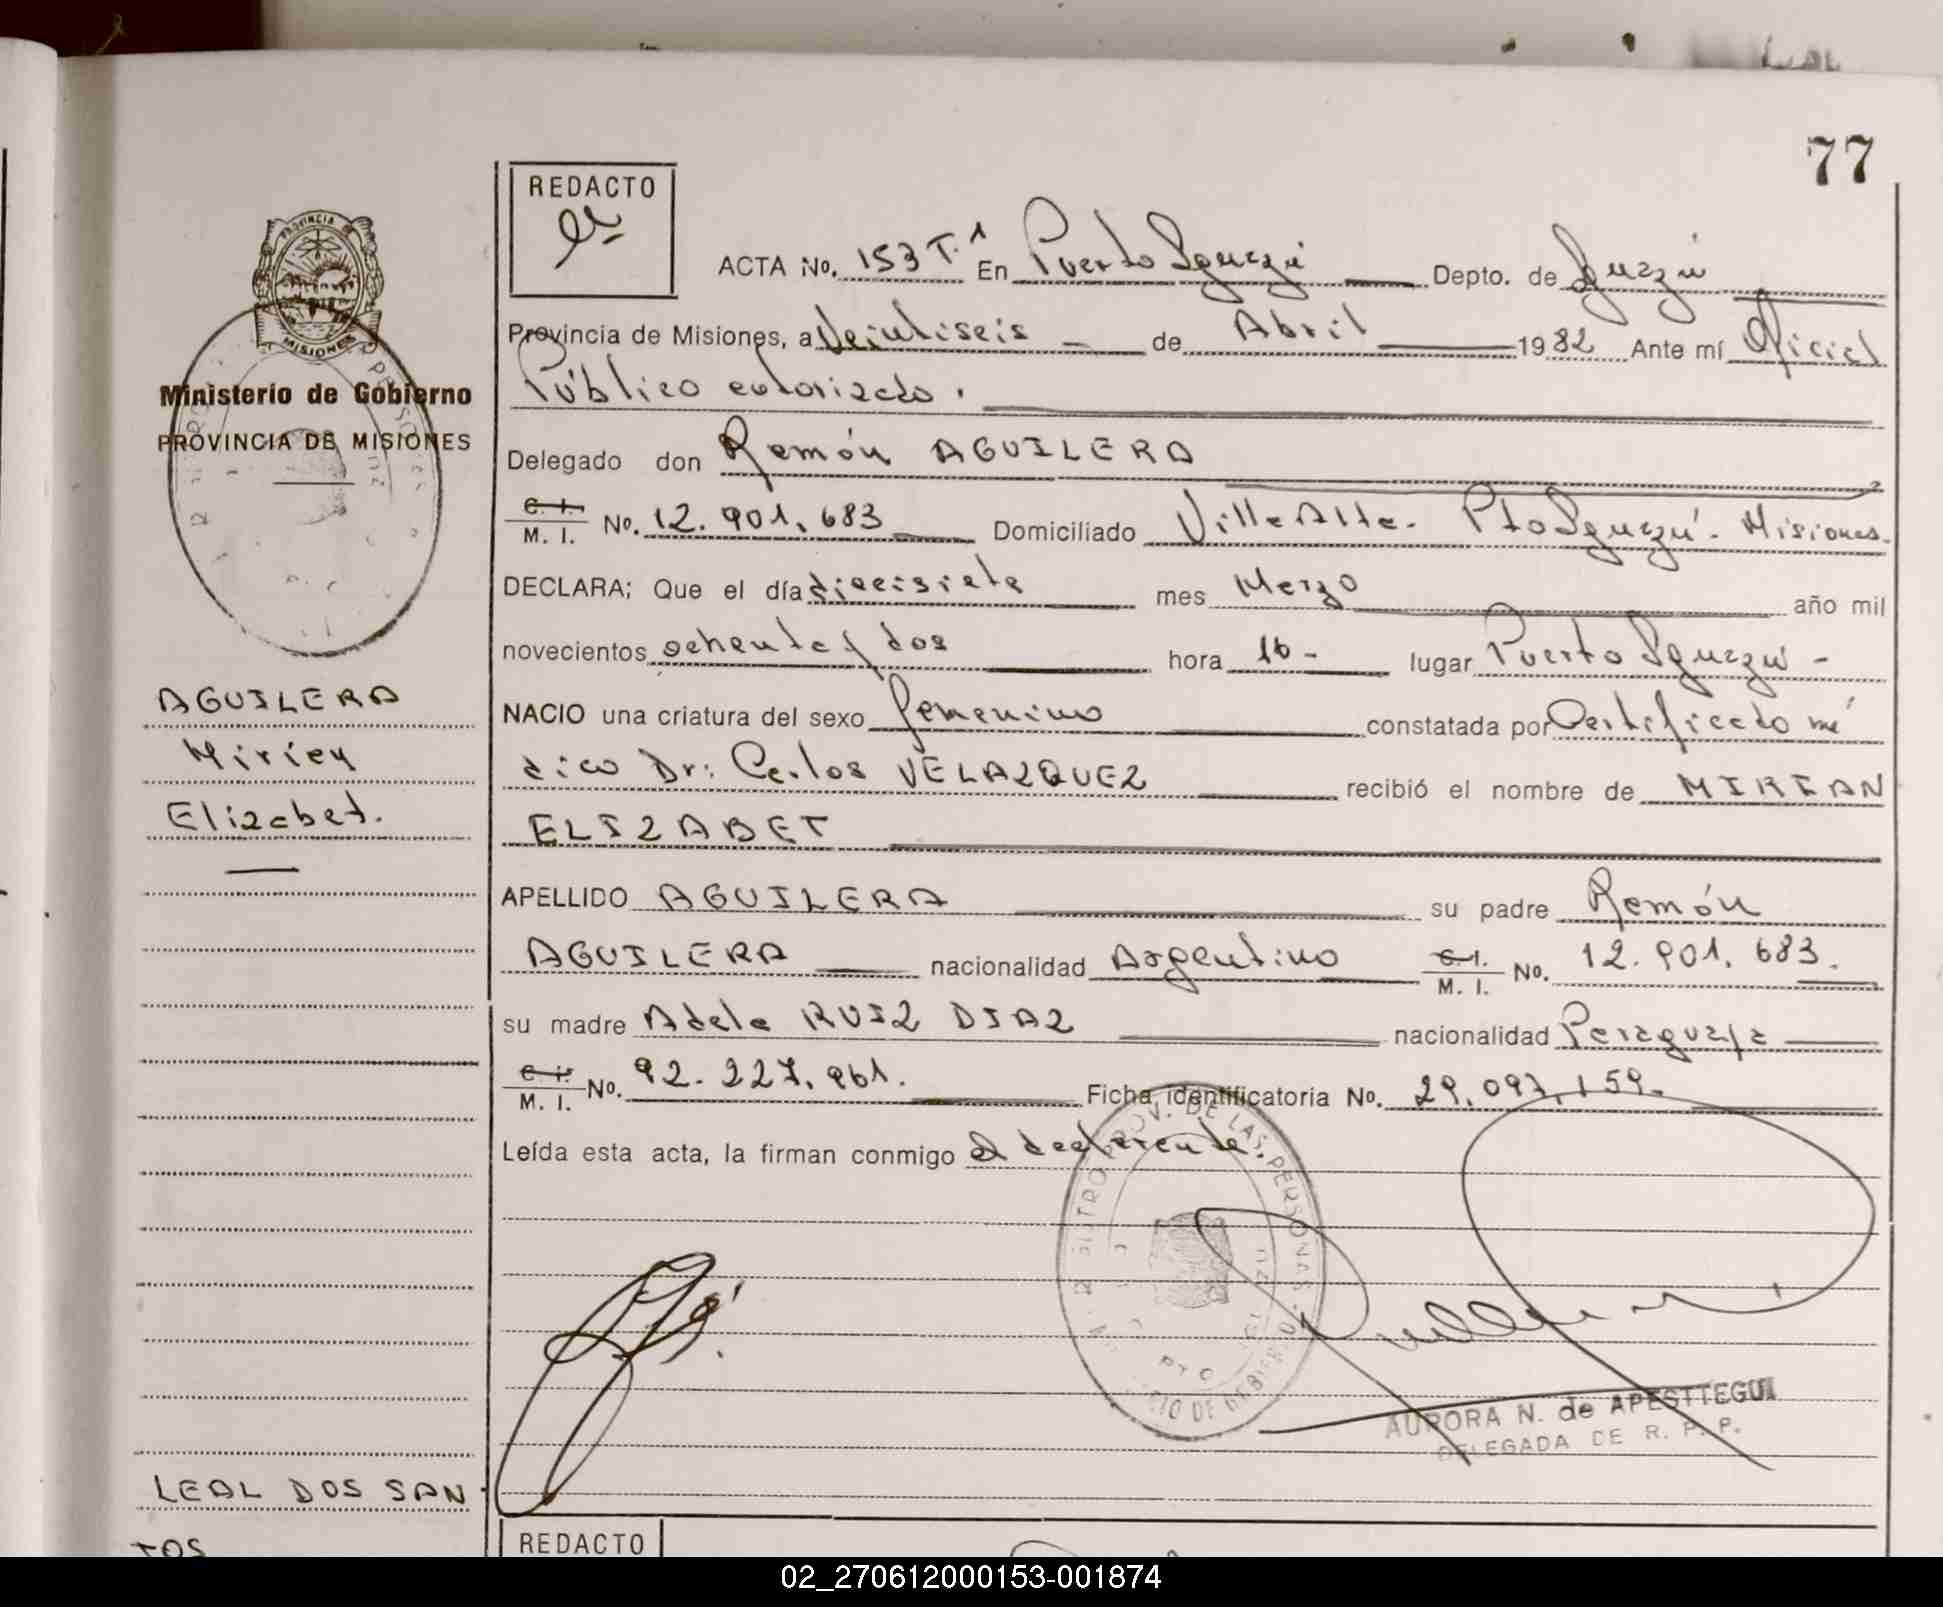 77
REDACTO
ACTA No. 153 T.1 En Puerto Iguazú Depto. de Iguazú
Provincia de Misiones, a Veintiseis de Abril 1982 Ante mí Oficial
Público autorizado.
PROVINCIA
MISIONES
Ministerio de Gobierno
PROVINCIA DE MISIONES
Delegado don Ramón AGUILERA
C. I.
M. I. No. 12.901.683 Domiciliado Villa Alta. Pto Iguazú. Misiones.
DECLARA; Que el día diecisiete mes Marzo año mil
novecientos ochenta y dos hora 16 - lugar Puerto Iguazú -
NACIO una criatura del sexo femenino constatada por Certificado mé
dico Dr: Carlos VELAZQUEZ recibió el nombre de MIRIAN
ELIZABET
AGUILERA
Mirian
Elizabet.
APELLIDO AGUILERA su padre Ramón
AGUILERA nacionalidad Argentino C. I.
M. I. No. 12.901.683.
su madre Adela RUIZ DIAZ nacionalidad Paraguaya
C. I.
M. I. No. 92.227.961. Ficha identificatoria No. 29.097.159.
Leída esta acta, la firman conmigo el declarante.
PROV. DE LAS PERSONAS
PTO
AURORA N. de APESTTEGUI
DELEGADA DE R. P. P.
LEAL DOS SAN
TOS
REDACTO
02_270612000153-001874